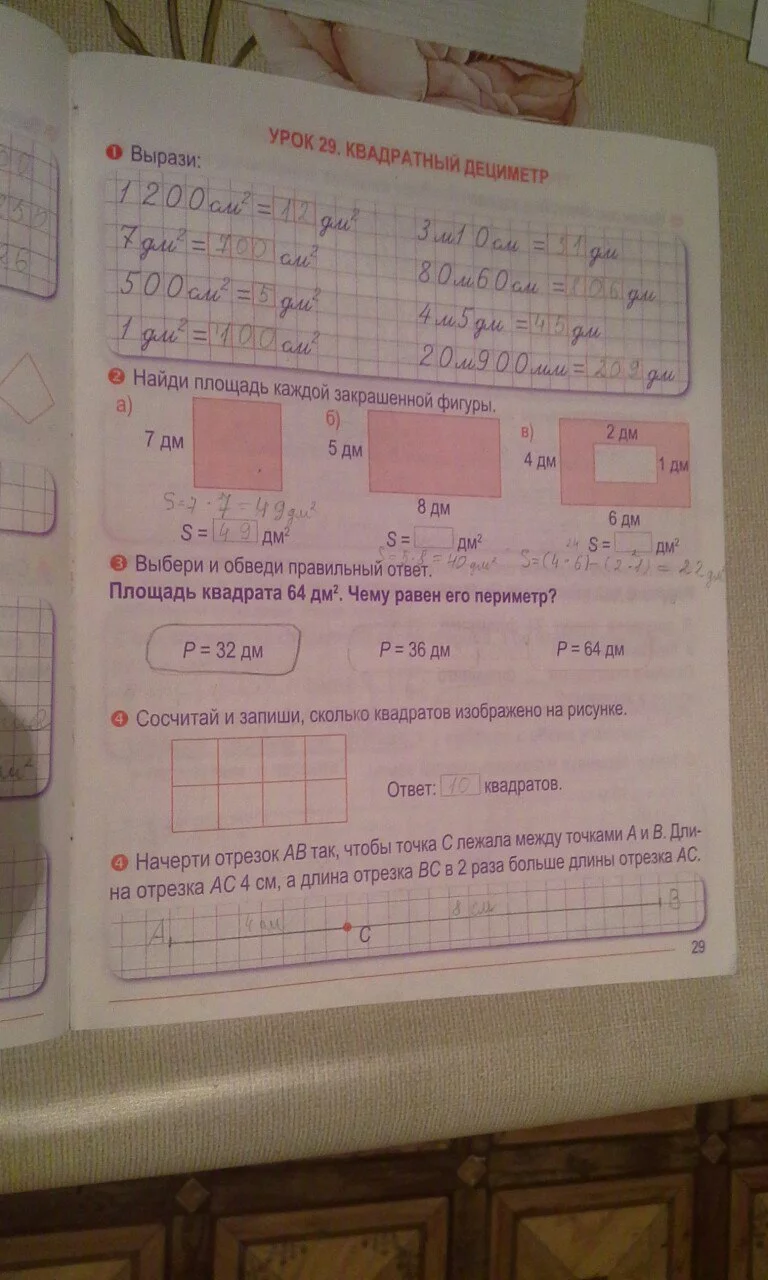 УРОК 29. КВАДРАТНЫЙ ДЕЦИМЕТР
1 Вырази:
1200 см² = 12 дм²
7 дм² = 700 см²
500 см² = 5 дм²
1 дм² = 100 см²
3 м 10 см = 31 дм
80 м 60 см = 806 дм
4 м 5 дм = 45 дм
20 м 900 мм = 209 дм
2 Найди площадь каждой закрашенной фигуры.
а)
7 дм
S = 7 · 7 = 49 дм²
S = 49 дм²
б)
5 дм
8 дм
S = дм²
S = 5 · 8 = 40 дм²
в)
2 дм
4 дм
1 дм
6 дм
S = дм²
24 2
S = (4 · 6) – (2 · 1) = 22 дм²
3 Выбери и обведи правильный ответ.
Площадь квадрата 64 дм². Чему равен его периметр?
P = 32 дм P = 36 дм P = 64 дм
4 Сосчитай и запиши, сколько квадратов изображено на рисунке.
Ответ: 10 квадратов.
4 Начерти отрезок AB так, чтобы точка C лежала между точками A и B. Дли-
на отрезка AC 4 см, а длина отрезка BC в 2 раза больше длины отрезка AC.
A 4 см C 8 см B
29